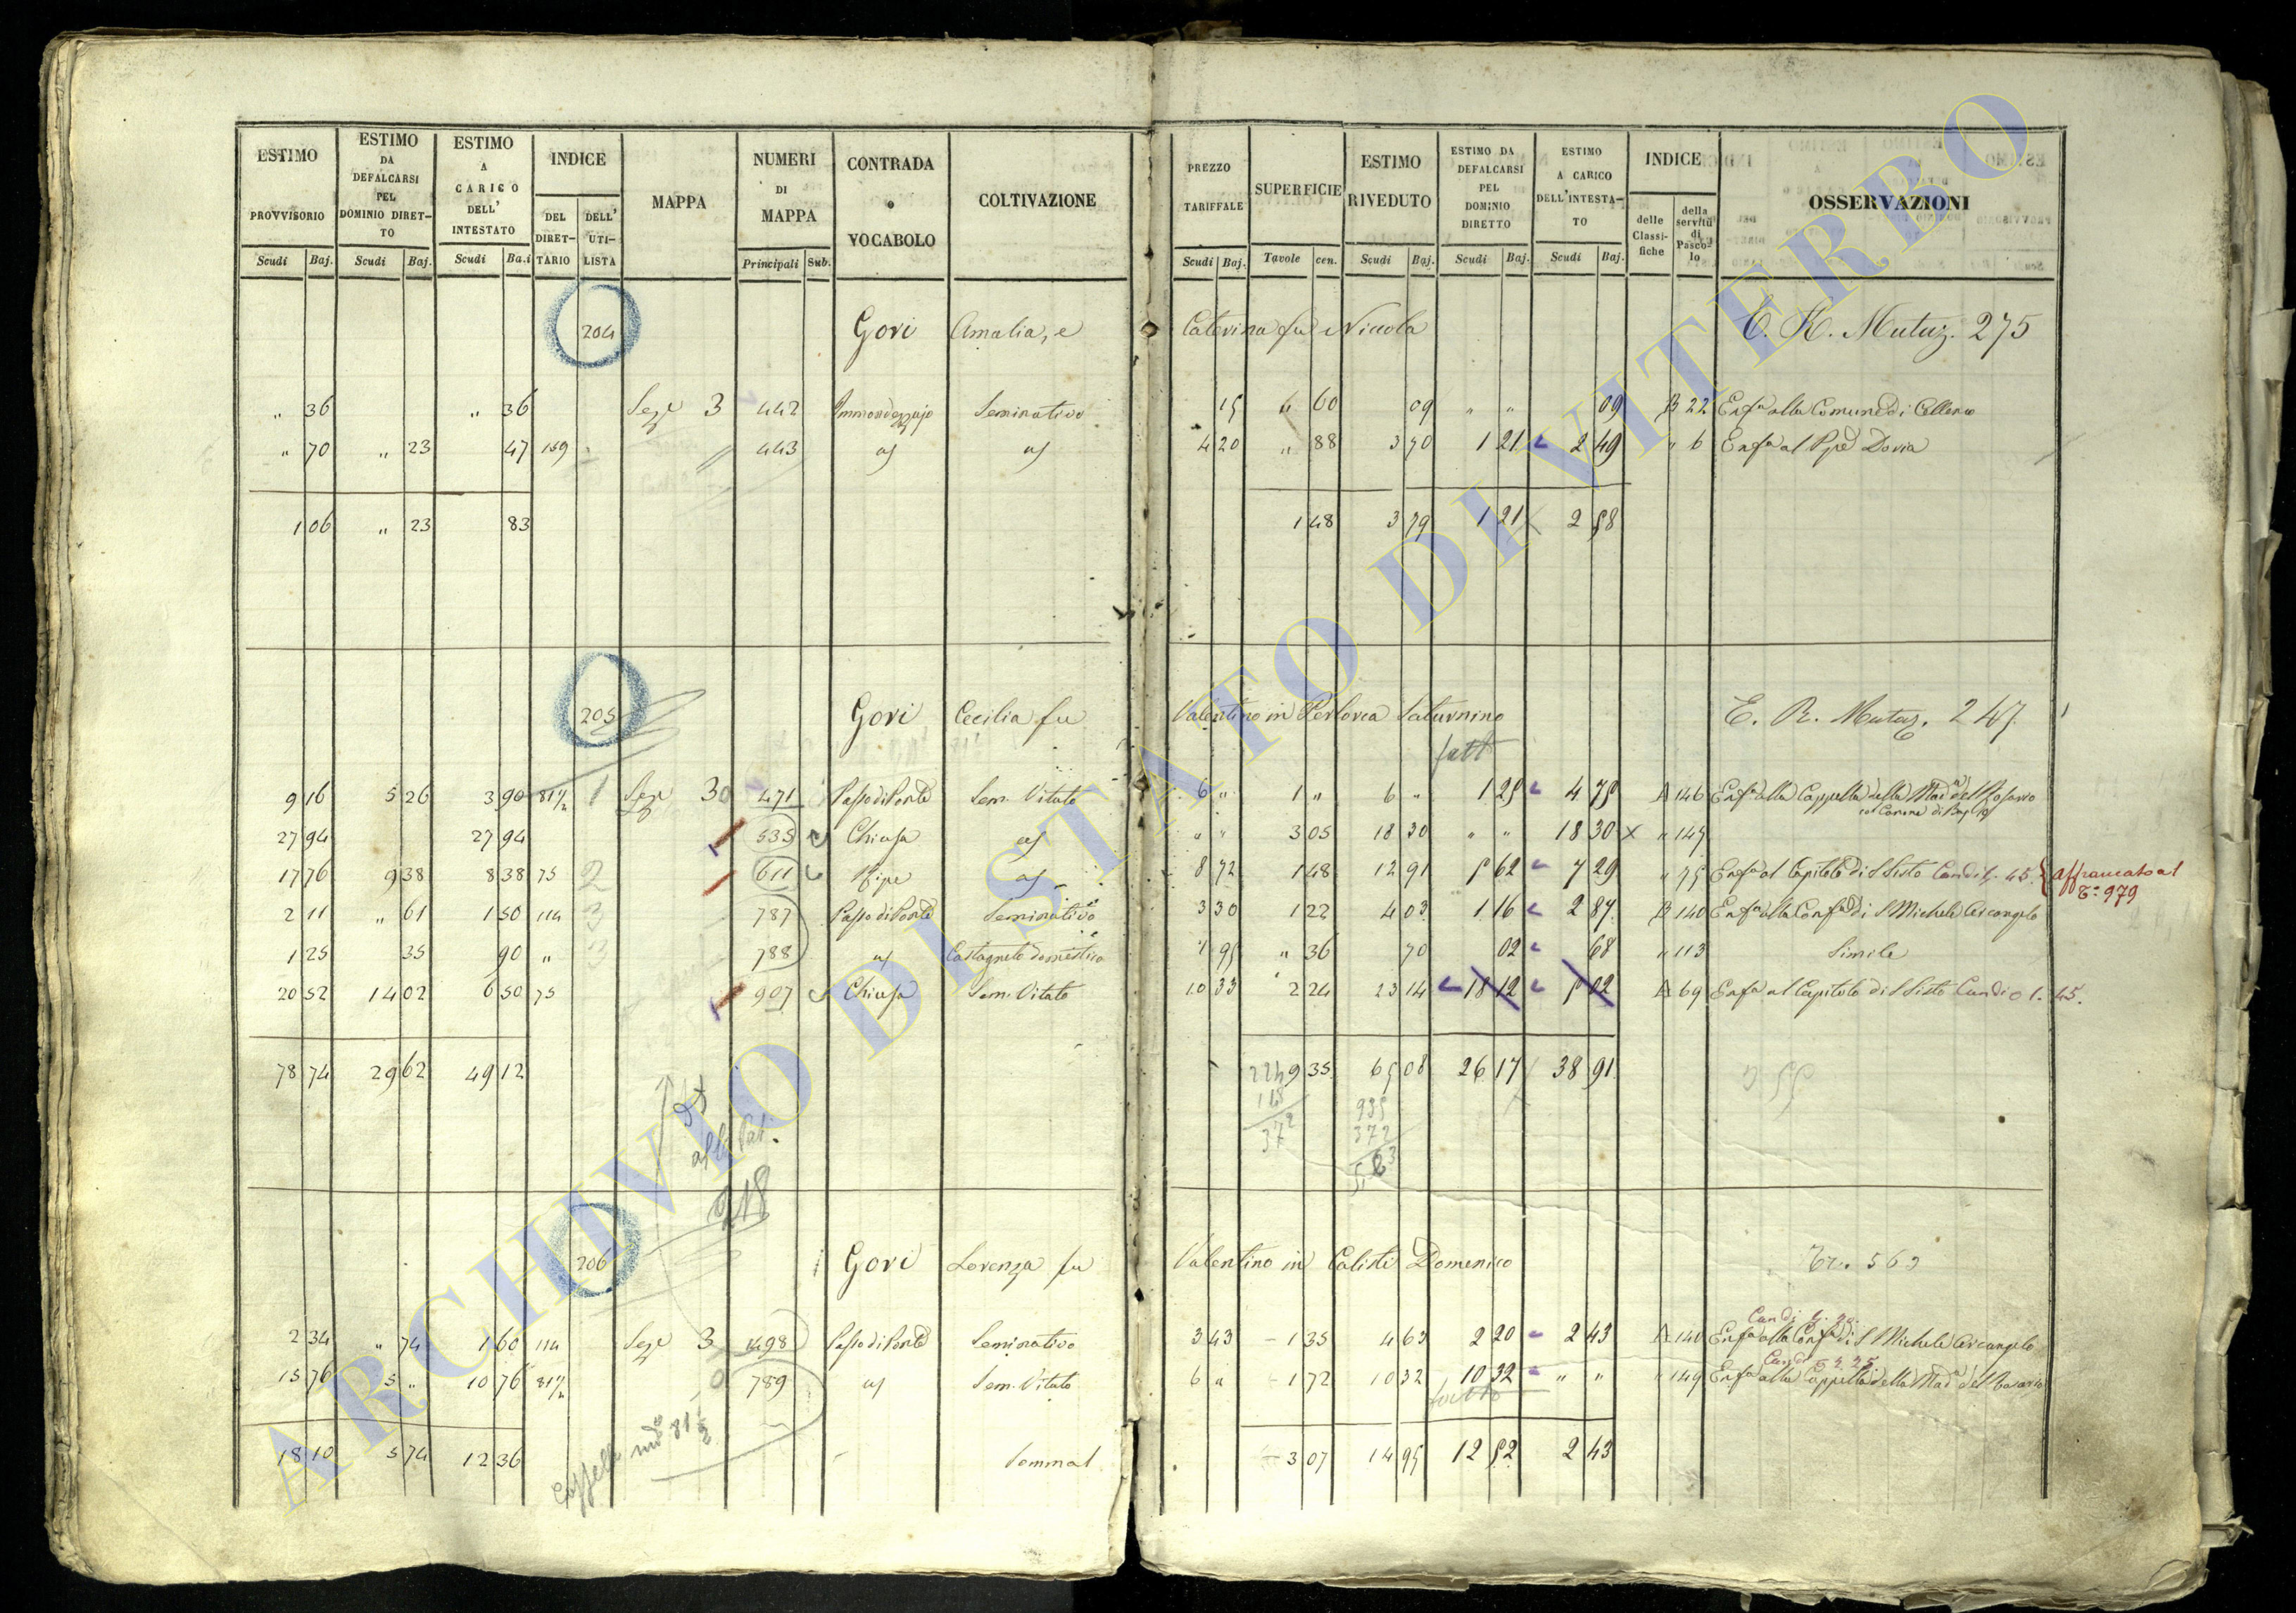 ESTIMO PROVVISORIO Scudi Baj.
ESTIMO DA DEFALCARSI PEL DOMINIO DIRETTO Scudi Baj.
ESTIMO A CARICO DELL' INTESTATO Scudi Ba.i
INDICE DEL DIRETTARIO DELL' UTILISTA
MAPPA
NUMERI DI MAPPA Principali Sub.
CONTRADA o VOCABOLO
COLTIVAZIONE
PREZZO TARIFFALE Scudi Baj.
SUPERFICIE Tavole cen.
ESTIMO RIVEDUTO Scudi Baj.
ESTIMO DA DEFALCARSI PEL DOMINIO DIRETTO Scudi Baj.
ESTIMO A CARICO DELL'INTESTATO Scudi Baj.
INDICE delle Classifiche della servitù di Pascolo
OSSERVAZIONI
204 Gori Amalia, e Caterina fu Niccola E. R. Mutaz. 275
" 36 " 36 Sez.e 3 442 Immondezzajo Seminativo 15 " 60 09 " " 09 B 22 Enf.a alla Comune di Celleno
" 70 " 23 47 159 " 443 as as 4 20 " 88 3 70 1 21 2 49 " 6 Enf.a al Ppe Doria
1 06 " 23 83 1 48 3 79 1 21 2 58
205 Gori Cecilia fu Valentino in Perlorca Saturnino E. R. Mutaz. 247
fatto
9 16 5 26 3 90 81½ 1 Sez.e 3 471 Passo di Ponte Sem. Vitato 6 " 1 " 6 " 1 25 4 75 A 146 Enf.a alla Cappella della Mad.a del Rosario
col Canone di Baj 19
27 94 27 94 535 Chiusa as " " 3 05 18 30 " " 18 30 " 145
17 76 9 38 8 38 75 2 611 Ripe as 8 72 1 48 12 91 5 62 7 29 " 75 Enf.a al Capitolo di S Sisto Candi 45. affrancato al
T.o 979
2 11 " 61 1 50 114 3 787 Passo di Ponte Seminativo 3 30 1 22 4 03 1 16 2 87 B 140 Enf.a alla Conf.a di S Michele Arcangelo
1 25 35 90 " 3 788 as Castagneto domestico 1 95 " 36 70 02 68 " 113 Simile
20 52 14 02 6 50 75 907 Chiusa Sem. Vitato 10 33 2 24 23 14 18 12 5 02 A 69 Enf.a al Capitolo di S Sisto Candi 45.
78 74 29 62 49 12 9 35 65 08 26 17 38 91
224
935
372
218
206 Gori Lorenza fu Valentino in Calisti Domenico Tr. 563
2 34 " 74 1 60 114 Sez.e 3 498 Passo di Ponte Seminativo 3 43 1 35 4 63 2 20 2 43 A 140 Enf.a alla Conf.a di S Michele Arcangelo
15 76 5 " 10 76 81½ 789 as Sem. Vitato 6 " 1 72 10 32 10 32 " " " 149 Enf.a alla Cappella della Mad.a del Rosario
fatto
18 10 5 74 12 36 Sommat 3 07 14 95 12 52 2 43
ARCHIVIO DI STATO DI VITERBO